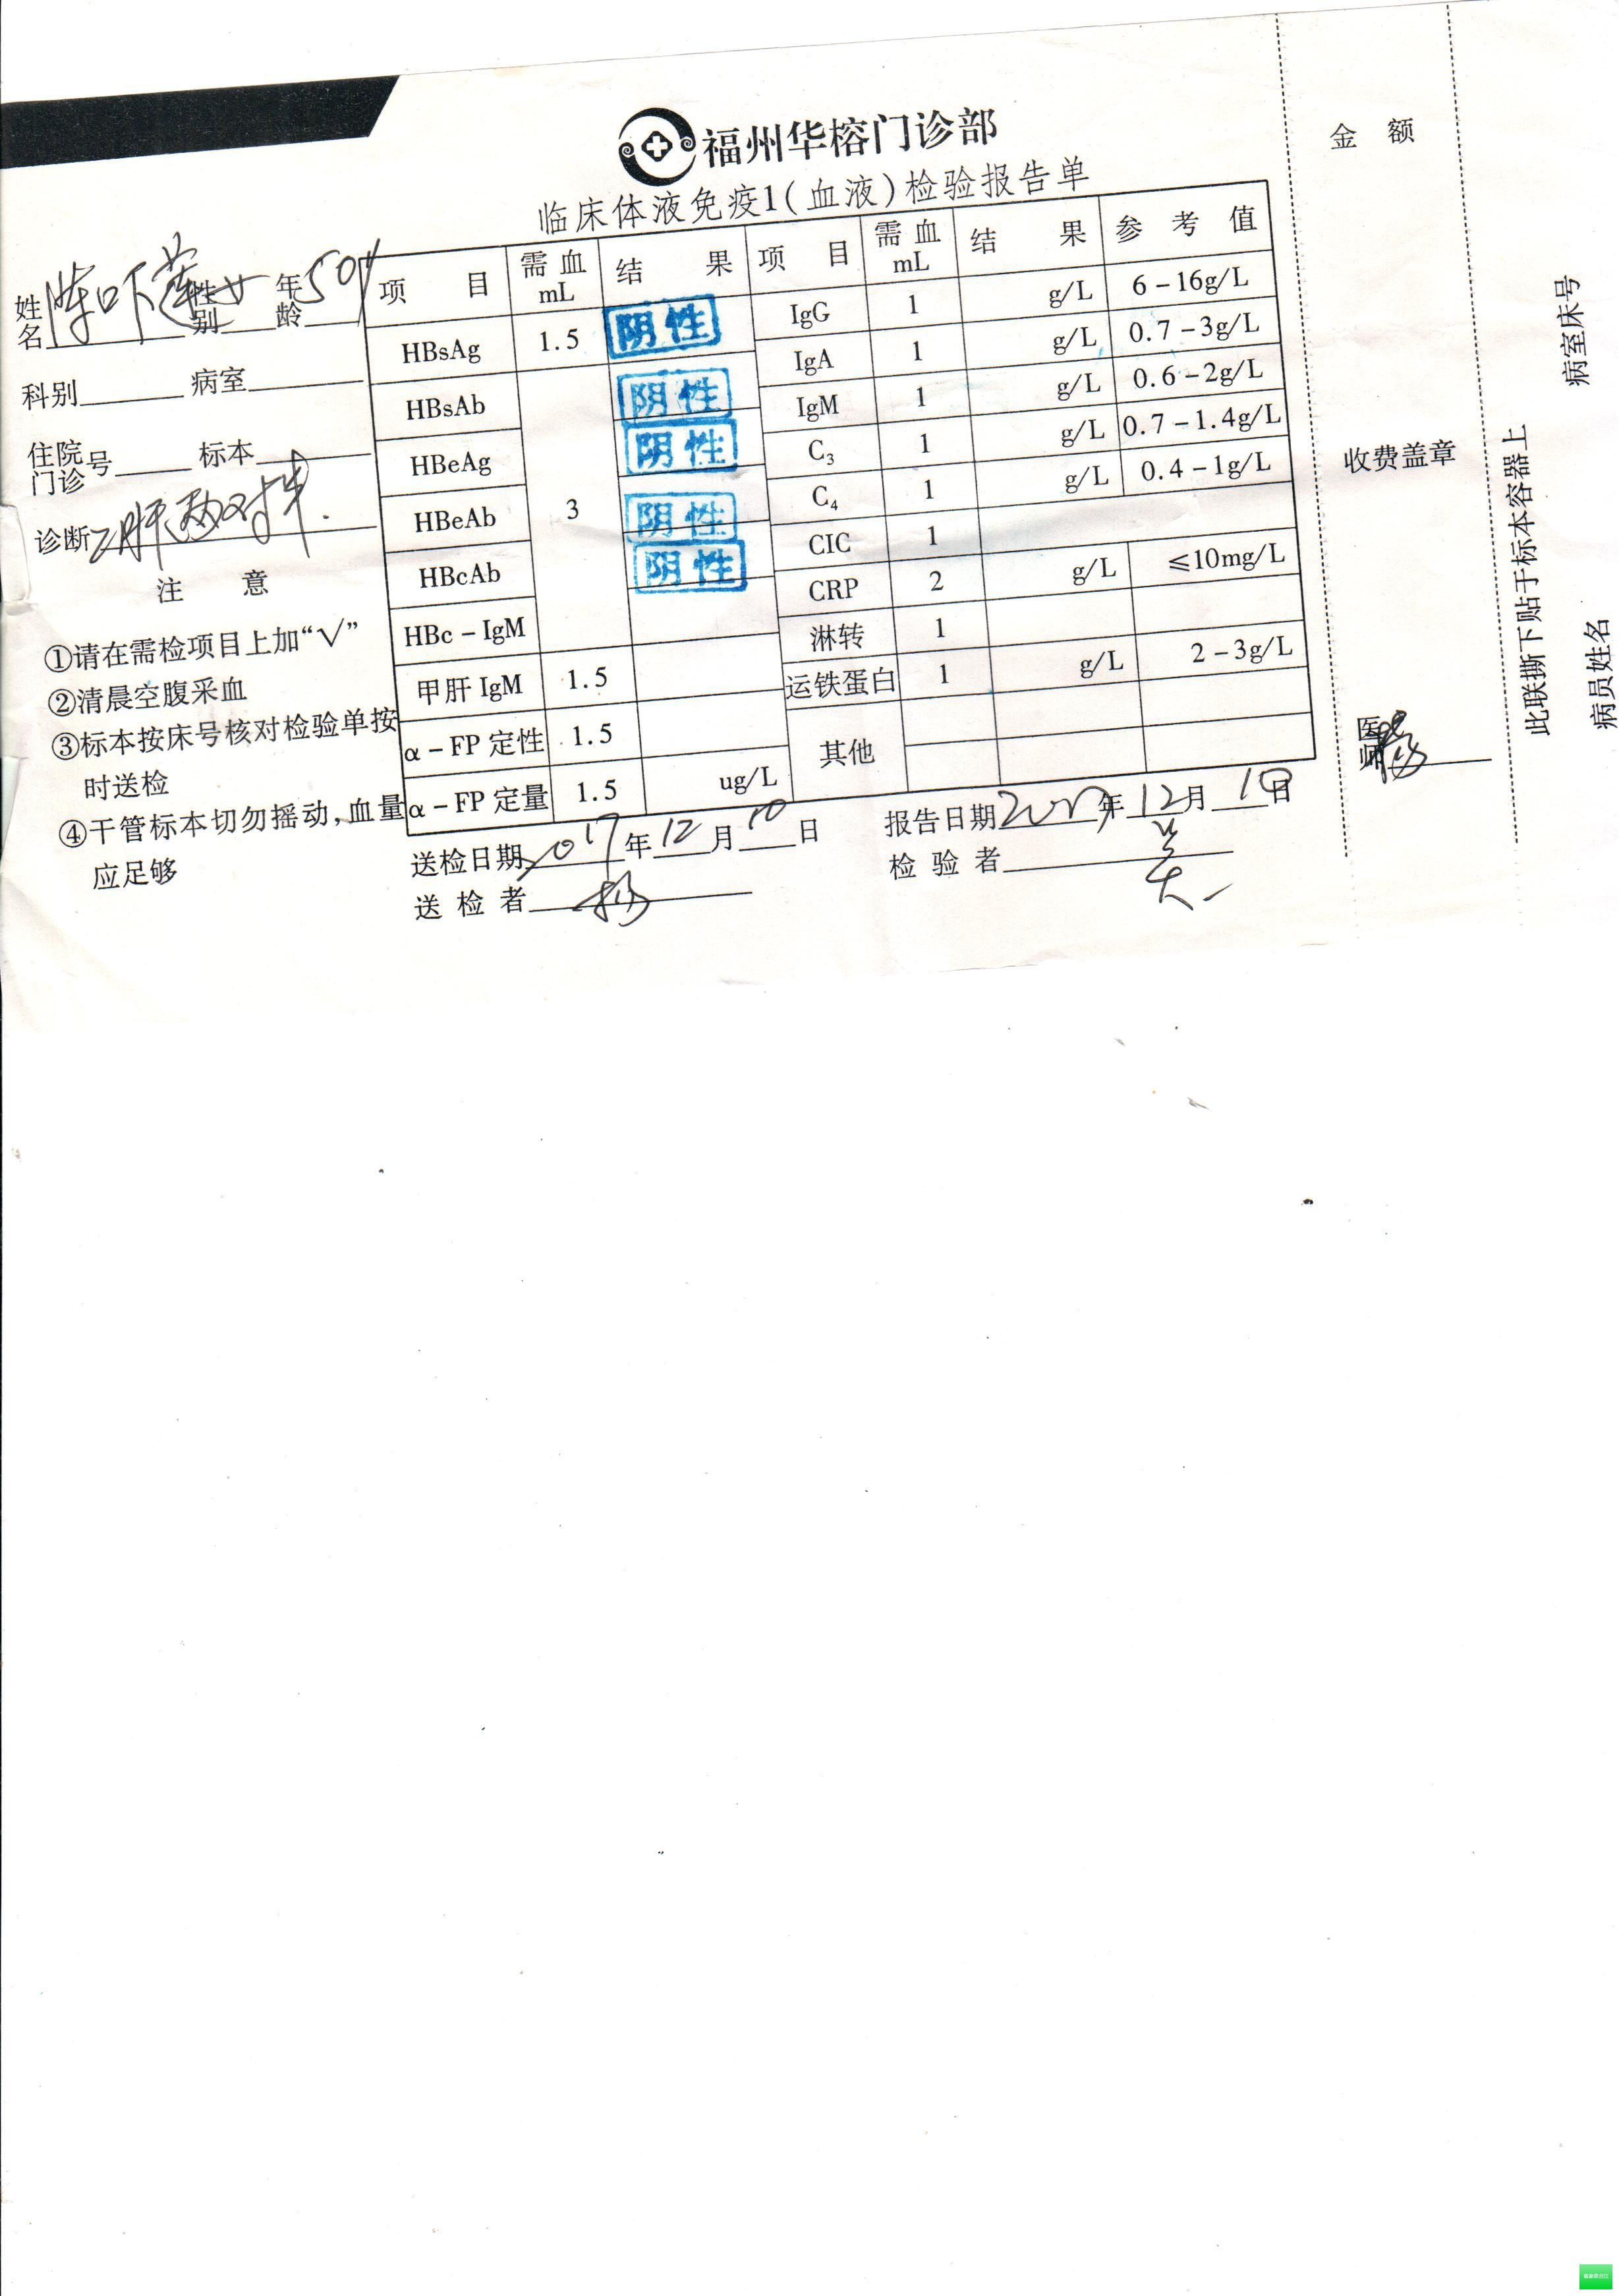 福州华榕门诊部
临床体液免疫1(血液)检验报告单
姓名 陈吓莲 性别 女 年龄 50岁
科别 病室
住院门诊号 标本
诊断 乙肝两对半.
注 意
①请在需检项目上加“√”
②清晨空腹采血
③标本按床号核对检验单按
时送检
④干管标本切勿摇动,血量
应足够
项 目 需血mL 结 果 项 目 需血mL 结 果 参 考 值
HBsAg 1.5 阴性 IgG 1 g/L 6-16g/L
HBsAb 3 阴性 IgA 1 g/L 0.7-3g/L
HBeAg 阴性 IgM 1 g/L 0.6-2g/L
HBeAb 阴性 C₃ 1 g/L 0.7-1.4g/L
HBcAb 阴性 C₄ 1 g/L 0.4-1g/L
HBc-IgM CIC 1
甲肝 IgM 1.5 CRP 2 g/L ≤10mg/L
α-FP 定性 1.5 淋转 1
α-FP 定量 1.5 ug/L 运铁蛋白 1 g/L 2-3g/L
其他
送检日期 2017年12月10日 报告日期 年12月10日
送 检 者 检 验 者
金 额
收费盖章
医师
此联撕下贴于标本容器上
病室床号
病员姓名